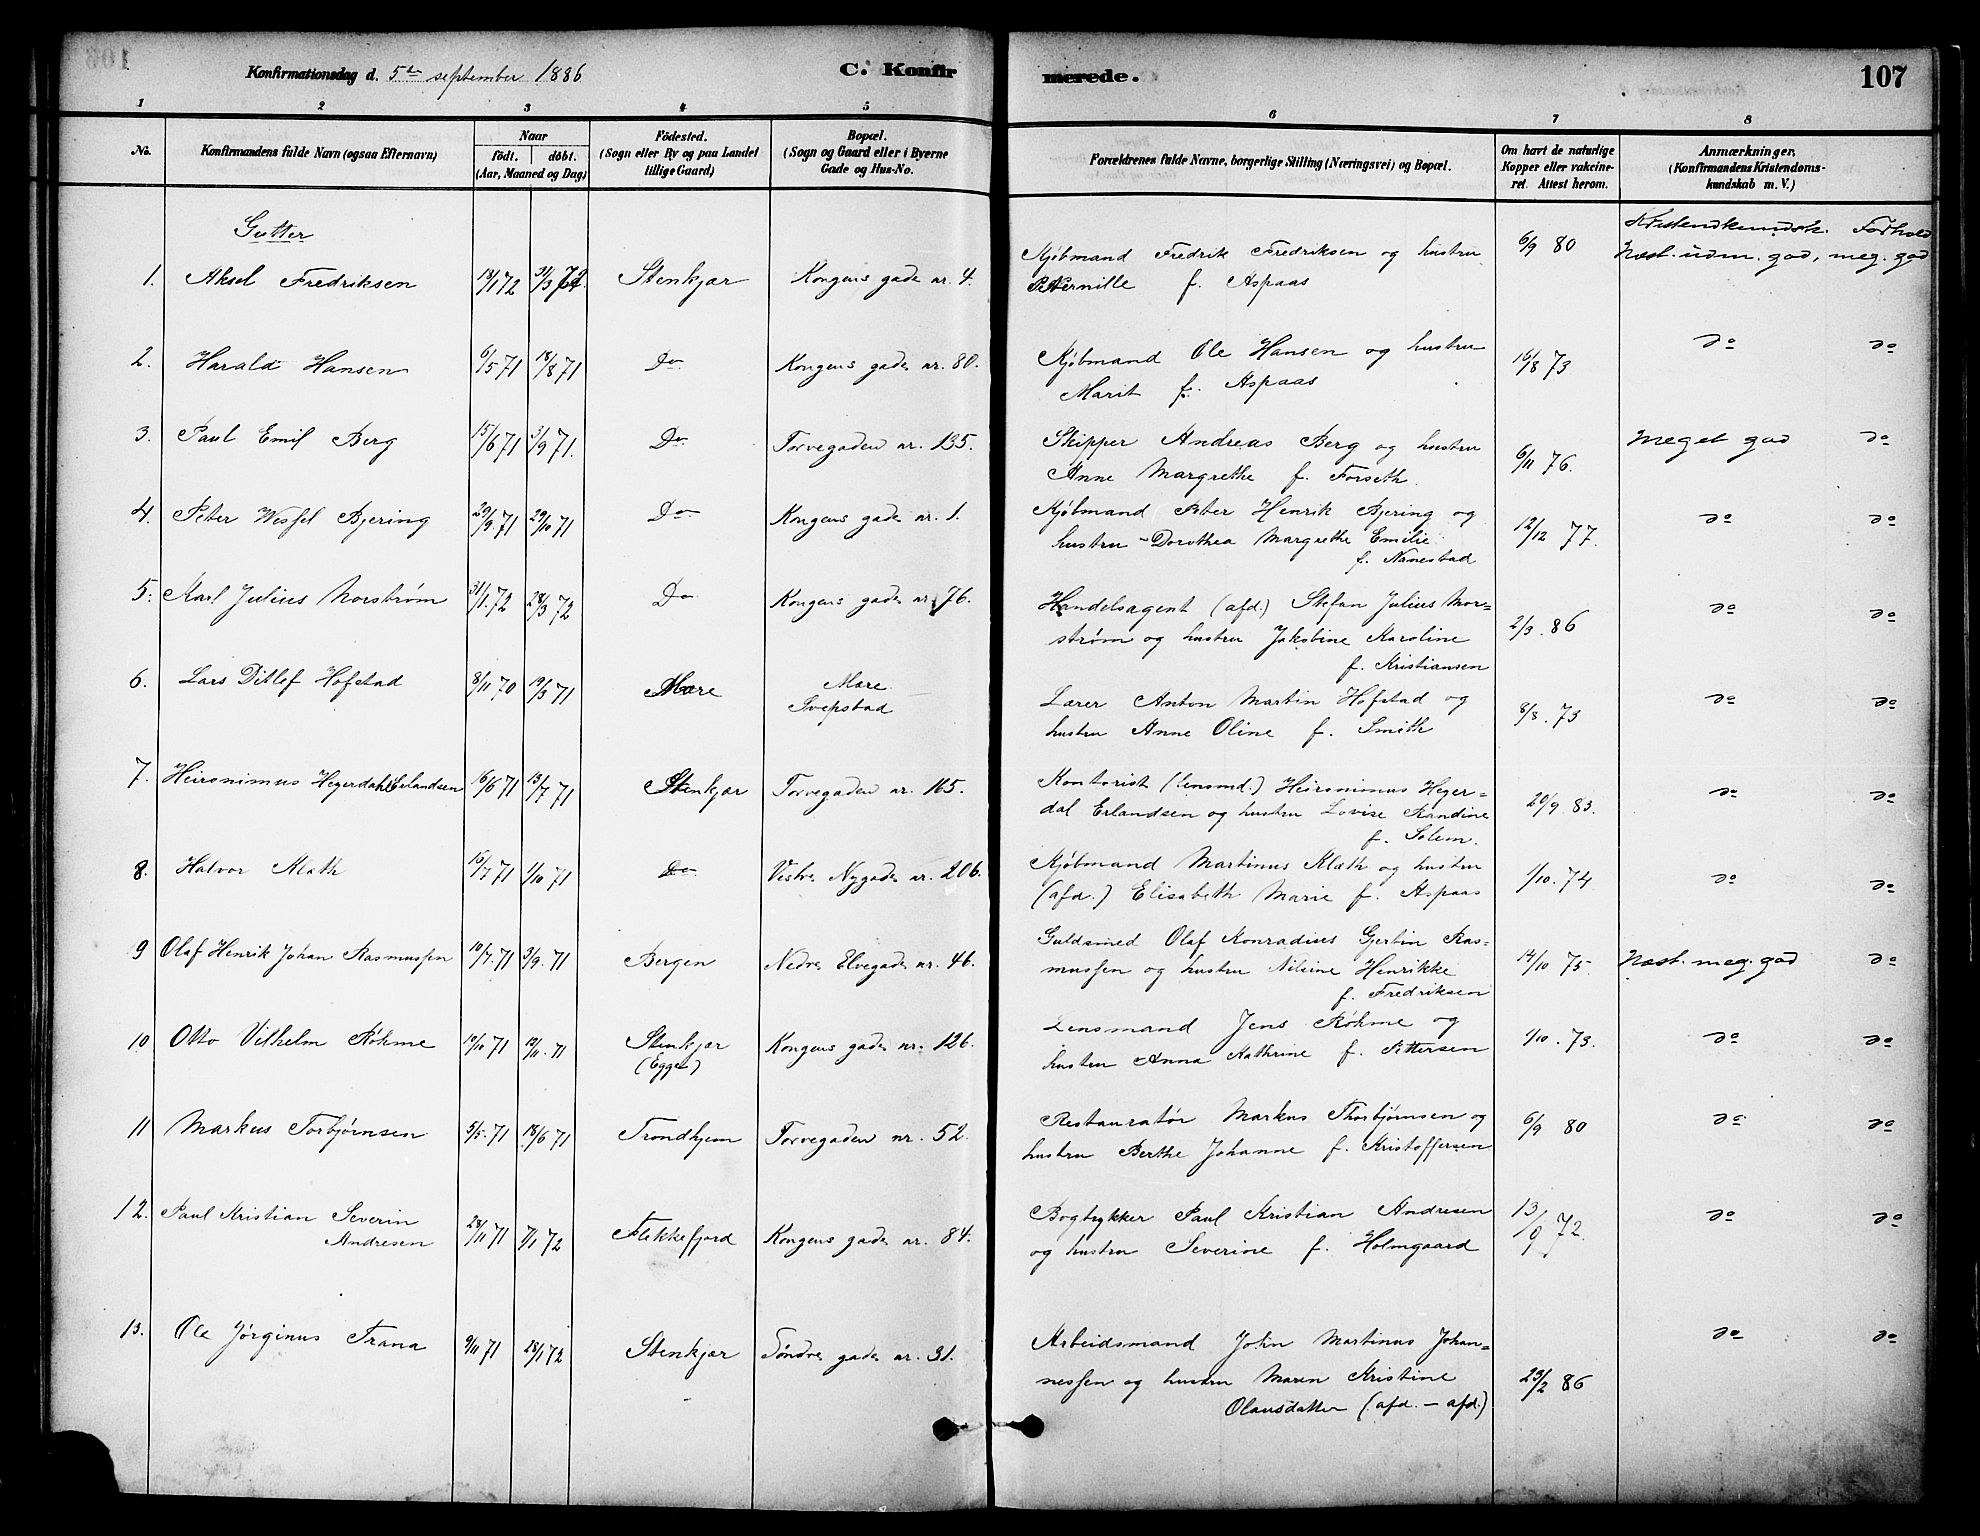 Konfirmationsdag d. 5te september 1886
C. Konfirmerede.
107
1 2 3 4 5 6 7 8
No.
Konfirmandens fulde Navn (ogsaa Efternavn)
Naar
födt. döbt.
(Aar, Maaned og Dag)
Födested.
(Sogn eller By og paa Landet
tillige Gaard)
Bopæl.
(Sogn og Gaard eller i Byerne
Gade og Hus-No.
Forældrenes fulde Navne, borgerlige Stilling (Næringsvei) og Bopæl.
Om havt de naturlige
Kopper eller vakcine-
ret. Attest herom.
Anmærkninger,
(Konfirmandens Kristendoms-
kundskab m. V.)
Gutter
Kristendkundsk. Forhold
1. Aksel Fredriksen 18/1 72 31/3 72 Stenkjær Kongens gade nr. 4. Kjøbmand Fredrik Fredriksen og hustru 6/9 80 Næst. udm. god, meg. god
Petternille f. Aspaas
2. Harald Hansen 6/5 71 18/8 71 Do Kongens gade nr. 80. Kjøbmand Ole Hansen og hustru 16/8 73 do do
Marit f. Aspaas
3. Paul Emil Berg 15/6 71 3/9 71. Do Torvegaden nr. 135. Skipper Andreas Berg og hustru 6/11 76. Meget god do
Anne Margrethe f. Forseth.
4. Peter Wessel Bjering 20/9 71 29/10 71 Do Kongens gade nr. 1. Kjøbmand Peter Henrik Bjering og 12/12 77. do do
hustru Dorothea Margrethe Emilie
f. Nanestad
5. Karl Julius Norstrøm 31/1 72 28/3 72 Do Kongens gade nr. 76. Handelsagent (afd.) Stefan Julius Nor=
strøm og hustru Jakobine Karoline 2/3. 86 do do
f. Kristiansen
6. Lars Ditlef Hofstad 8/11 70 19/3 71 Mære Mære
Svepstad Lærer Anton Martin Hofstad og 8/8. 73 do do
hustru Anne Oline f. Smith
7. Heironimus Hegerdahl Erlandsen 16/6 71 13/7 71 Stenkjær Torvegaden nr. 165. Kontorist (lensmd.) Heironimus Heger=
dal Erlandsen og hustru Lovise Randine 20/9 83. do do
f. Solem.
8. Halvor Klæth 15/7 71 1/10 71 Do Vestre Nygade nr. 206. Kjøbmand Martinus Klæth og hustru 1/10. 74 do do
(afd.) Elisabeth Marie f. Aspaas
9 Olaf Henrik Johan Rasmussen 10/7. 71 3/9. 71 Bergen Nedre Elvegade nr. 46. Guldsmed Olaf Konradius Gjertin Ras=
mussen og hustru Nilsine Henrikke 14/10 75. Næst. meg. god do
f. Fredriksen
10 Otto Vilhelm Røhme 10/10 71 19/11. 71 Stenkjær
(Egge) Kongens gade nr. 126. Lensmand Jens Røhme og 1/10. 73. do do
hustru Anna Kathrine f. Pettersen
11 Markus Torbjørnsen 5/5. 71 18/6 71 Trondhjem Torvegaden nr. 52. Restauratør Markus Thorbjørnsen og 6/9 80 do do
hustru Berthe Johanne f. Kristoffersen
12. Paul Kristian Severin
Andresen 28/11 71 7/1 72 Flekkefjord Kongens gade nr. 84. Bogtrykker Paul Kristian Andresen 13/9 72. do do
og hustru Severine f. Holmgaard
13. Ole Jørginus Trana 9/11 71 28/1 72 Stenkjær Søndre gade nr. 31. Arbeidsmand John Martinus Johan=
nessen og hustru Maren Kristine 23/2 86 do do
Olausdatter (afd. – afd.)